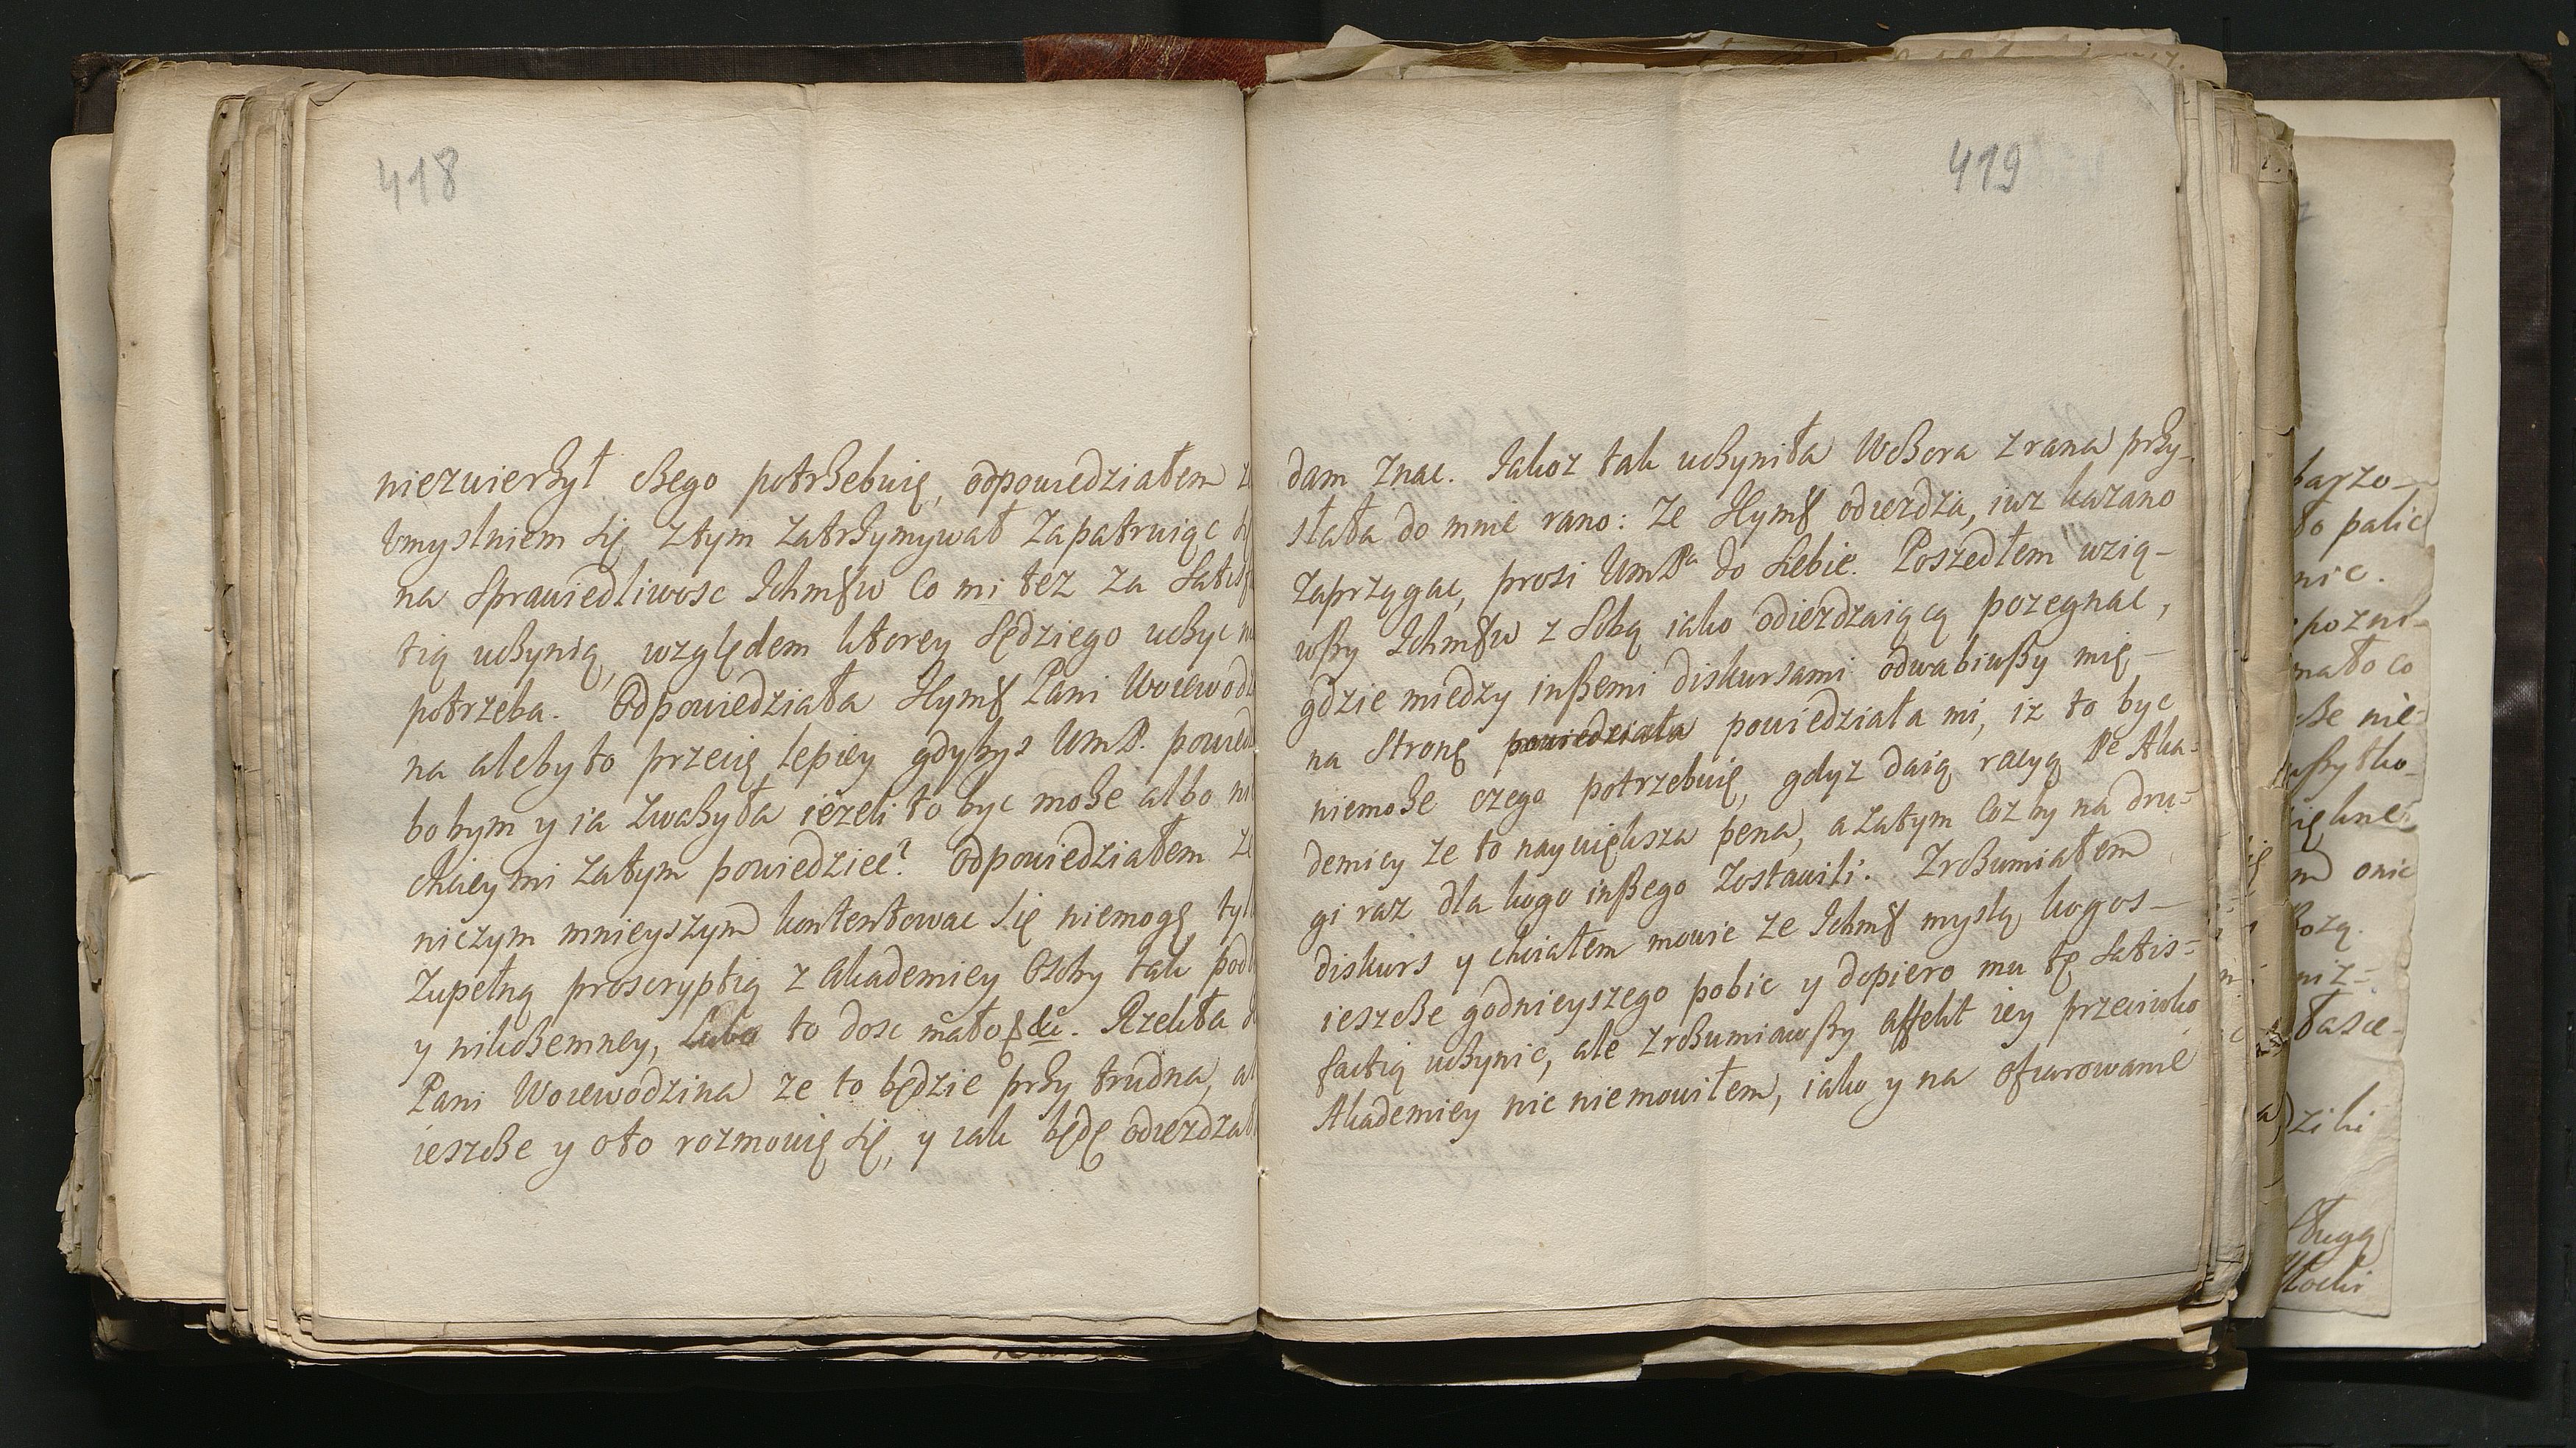 418
niezwierzył czego potrzebuię, odpowiedziałem
Umyslniem się ztym zatrzymywał zapatruiąc
na Sprawiedliwosc Ichmsw co mi tez za Satis
tią uczynią, względem ktorey Sędziego uczyc
potrzeba. Odpowiedziała Hyms Pani Woiewod
na aleby to przecię lepiey gdybys UmP. powied
bo bym y ia zwazyła iezeli to byc moze albo ni
chciey mi zatym powiedziec? Odpowiedziałem ze
niczym mnieyszym kontentowac się niemogę tyl
Zupełną proscryptią z Akademiey Osoby tak podł
y nikczemney, Lubo to dosc mało
Rzekła
Pani Woiewodzina ze to będzie przy trudna, al
ieszcze y oto rozmowię się, y iak będę odiezdzał
419
dam znac. Iakoz tak uczyniła Wczora z rana przy-
słała do mnie rano: Ze Hyms odiezdza, iuz kazano
zaprzągac, prosi UmPa do siebie. Poszedłem wzią-
wszy Ichmsw z Sobą iako odiezdzaiącą pozegnac,
gdzie miedzy inszemi diskursami odwabiwszy mię-
na Stronę powiedziała powiedziała mi, iz to byc
niemoze czego potrzebuię, gdyz daią racyą Pe Aka-
demicy ze to naywiększa pena, a zatym coz by na dru-
gi raz dla kogo inszego zostawili. Zrozumiałem
diskurs y chciałem mowic ze Ichms myslą kogos-
ieszcze godnieyszego pobic y dopiero mu tę Satis-
factią uczynic, ale zrozumiawszy affekt iey przeciwko
Akademiey nic niemowiłem, iako y na ofiarowanie
barzo-
to palic
nic.
mało co
nie-
onic
niz-
łasce-
ziki
sługą